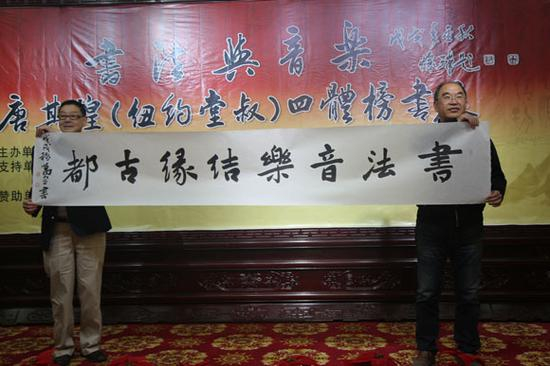 書法與音樂
唐其煌(纽约堂叔)四體榜書
主办单
支持单
赞助单
書法音樂結緣古都